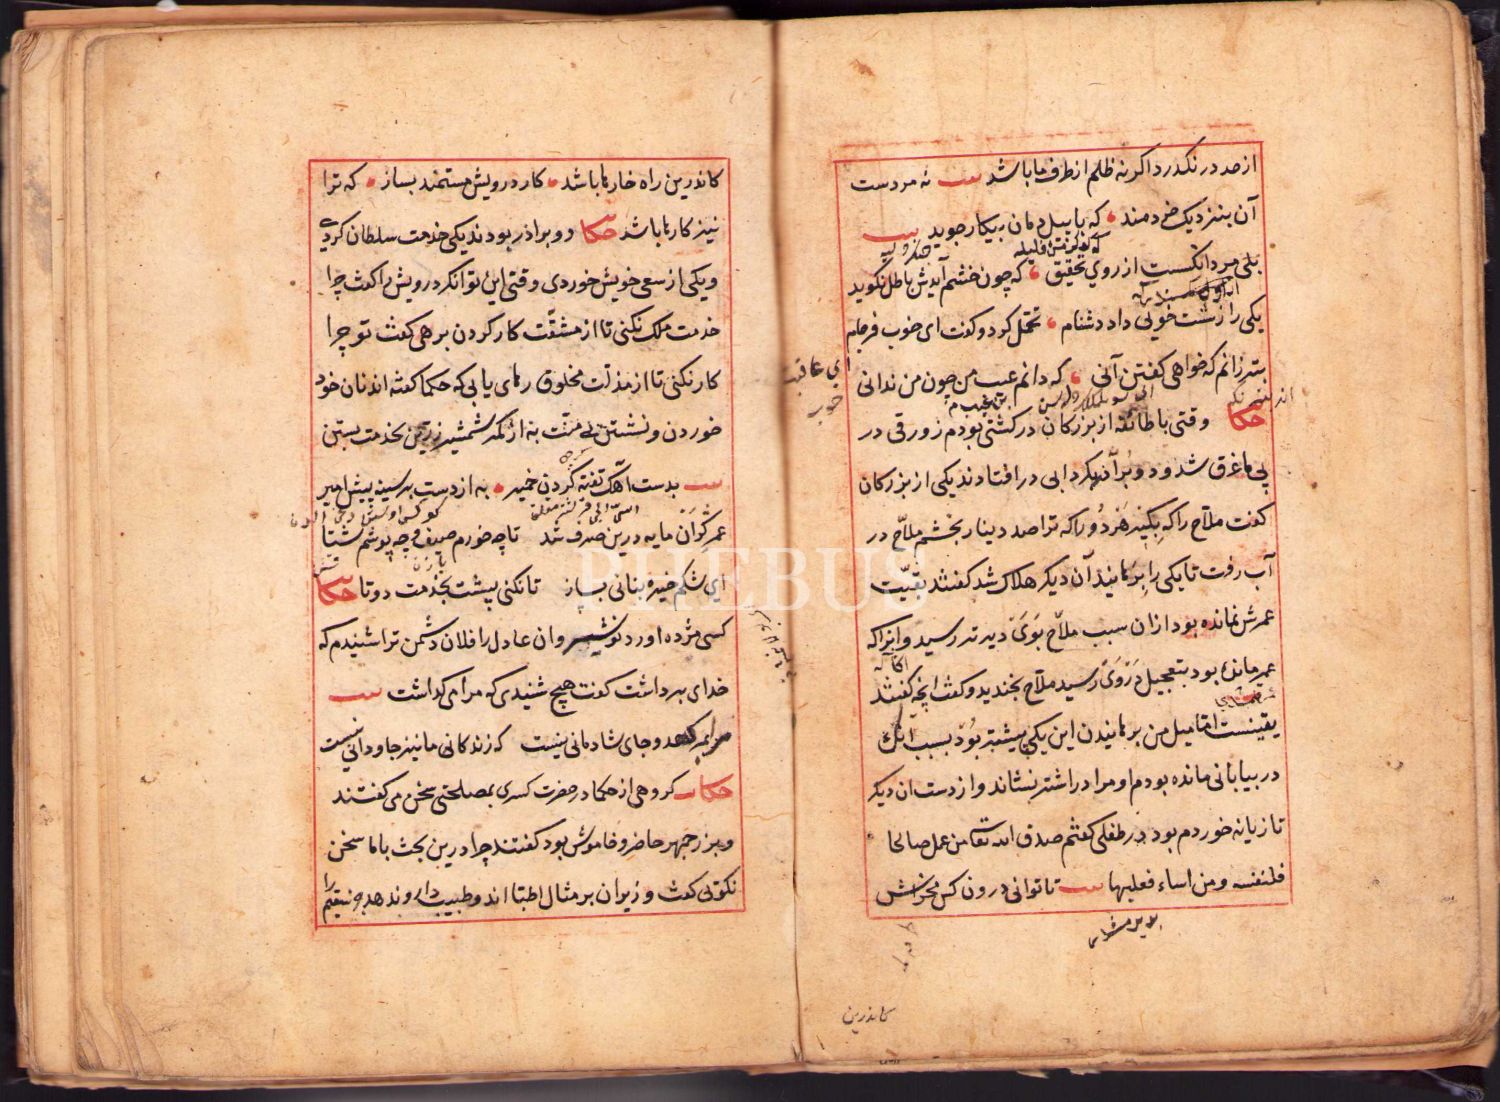 از صد در نگذرد اگر نه ظلم از طرف ما باشد بیت نه مردست
آن بنزدیک خردمند که با پیل دمان پیکار جوید بیت
بلی مرد انکسست از روی تحقیق که چون خشم آیدش باطل نگوید
یکی را زشت خوئی داد دشنام تحمل کرد و کفت ای خوب فرجام
بتر زانم که خواهی کفتن آنی که دانم عیب من چون من ندانی
حکایت وقتی با طائفه از بزرکان در کشتی بودم زورقی در
پی ما غرق شد و دو برادر بکردابی در افتادند یکی از بزرکان
کفت ملاح را که بکیر هر دو را که ترا صد دینار بخشم ملاح در
آب رفت تا یکی را برهانید آن دیکر هلاک شد کفتند بقیت
عمرش نمانده بود از ان سبب ملاح بوی دیرتر رسید و انرا که
عمر مانده بود بتعجیل در وی رسید ملاح بخندید و کفت انچه کفتند
یقینست اما میل من برهانیدن این یکی بیشتر بود بسبب آنک
در بیابانی مانده بودم او مرا در اشتر نشاند و از دست ان دیکر
تازیانه خوردم بود در طفلی کفتم صدق الله تعا من عمل صالحا
فلنفسه ومن اساء فعلیها بیت تا توانی درون کس مخراش
کاندرین
کاندرین راه خارها باشد کار درویش مستمند بساز که ترا
نیز کارها باشد حکایت دو برادر بودند یکی خدمت سلطان کردی
و یکی از سعی خویش خوردی وقتی این توانکر درویش را کفت چرا
خدمت ملک نکنی تا از مشقت کار کردن برهی کفت تو چرا
کار نکنی تا از مذلت مخلوق رهای یابی که حکما کفته اند نان خود
خوردن و نشستن بی منت به از کمر شمشیر زرین بخدمت بستن
بیت بدست آهک تفته کردن خمیر به از دست بر سینه پیش امیر
عمر کران مایه درین صرف شد تا چه خورم صیف و چه پوشم شتا
ای شکم خیره بنانی بساز تا نکنی پشت بخدمت دوتا حکایت
کسی مژده اورد نوشیروان عادل را فلان دشمن ترا شنیدم که
خدای برداشت کفت هیچ شنیدی که مرا می کذاشت بیت
مرا بمرک عدو جای شادمانی نیست که زندکانی ما نیز جاودانی نیست
حکایت کروهی از حکما در حضرت کسری بمصلحتی سخن می کفتند
و بزرجمهر حاضر و خاموش بود کفتند چرا درین بحث با ما سخن
نکوئی کفت وزیران بر مثال اطبا اند و طبیب دارو ندهد جز سقیم را
PHEBUS